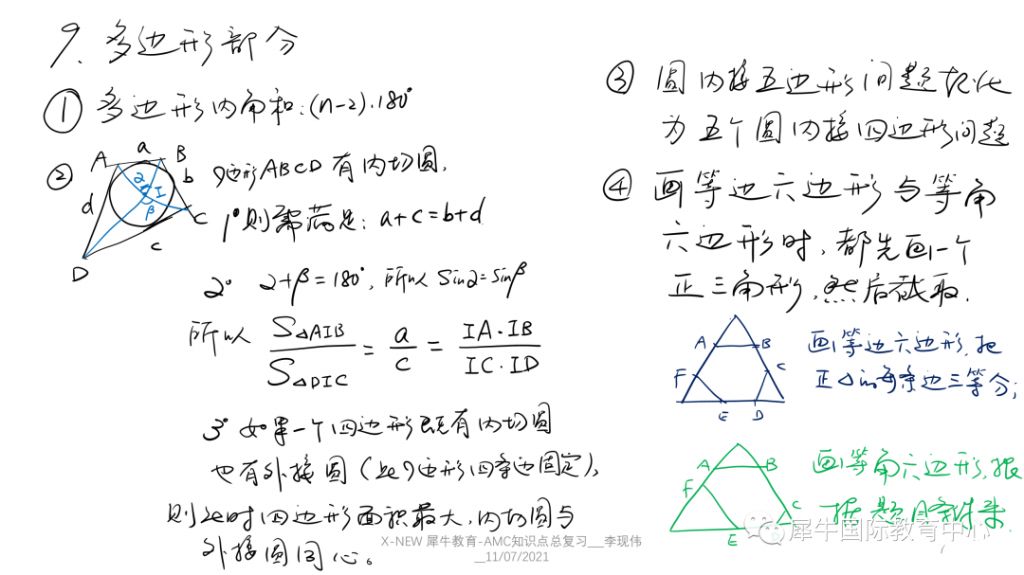 9. 多边形部分
① 多边形内角和:(n-2)·180°
② A a B b I 2 β d c C D
四边形ABCD有内切圆.
1° 则需满足: a+c=b+d
2° 2+β=180°, 所以 Sin2=Sinβ
所以 S△AIB / S△DIC = a / c = IA·IB / IC·ID
3° 如果一个四边形既有内切圆
也有外接圆(此四边形四条边固定),
则此时四边形面积最大, 内切圆与
外接圆同心。
③ 圆内接五边形问题转化
为五个圆内接四边形问题
④ 画等边六边形与等角
六边形时, 都先画一个
正三角形, 然后截取.
A B C D E F
画等边六边形, 把
正△的每条边三等分;
A B C E F
画等角六边形, 根
据题目条件来
犀牛国际教育中心
X-NEW 犀牛教育-AMC知识点总复习__李现伟
__11/07/2021